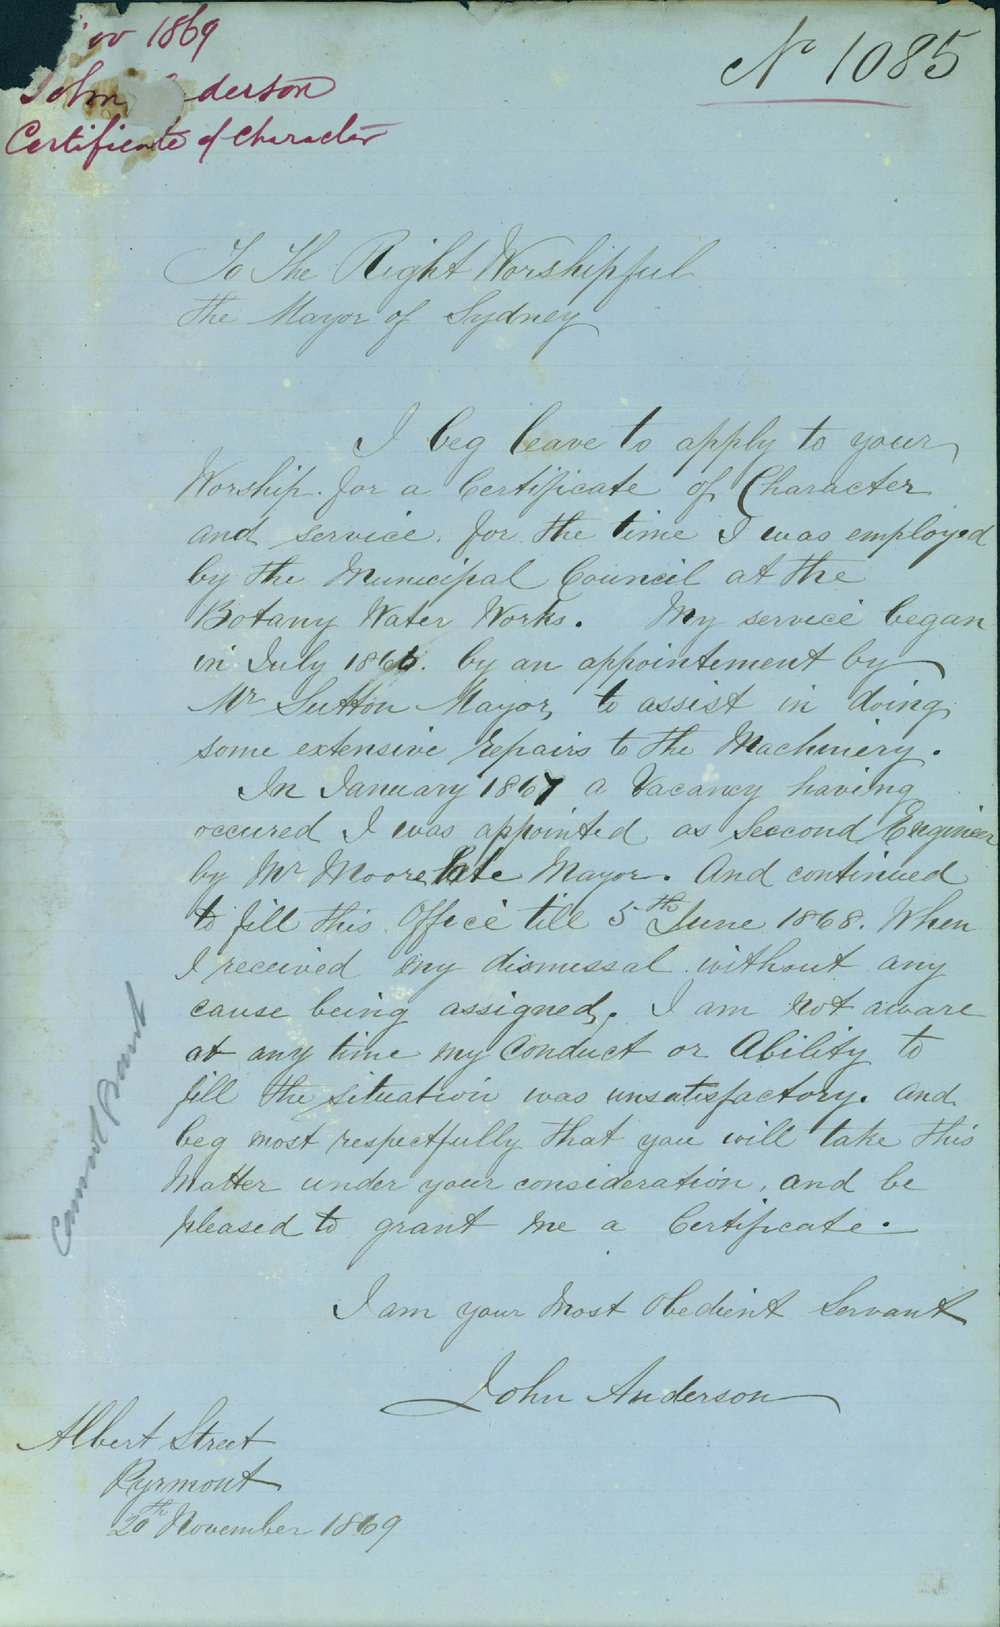 Nov 1869
John derson
Certificate of Character
No 1085
To The Right Worshipful
The Mayor of Sydney
I beg leave to apply to your
Worship. for a Certificate of Character
and service. for the time I was employed
by the Municipal Council at the
Botany Water Works. My service began
in July 1866. by an appointement by
Mr Sutton Mayor, to assist in doing
some extensive repairs to the Machinery.
In January 1867 a Vacancy having
occured I was appointed as Second Engineer
by Mr Moore late Mayor. And continued
to fill this Office till 5th June 1868. When
I received my dismissal without any
cause being assigned. I am not aware
at any time my Conduct or Ability to
fill the situation was unsatisfactory. and
beg most respectfully that you will take this
Matter under your consideration, and be
pleased to grant me a Certificate.
Cannot grant
I am your Most Obedient Servant
John Anderson
Albert Street
Pyrmont
20th November 1869